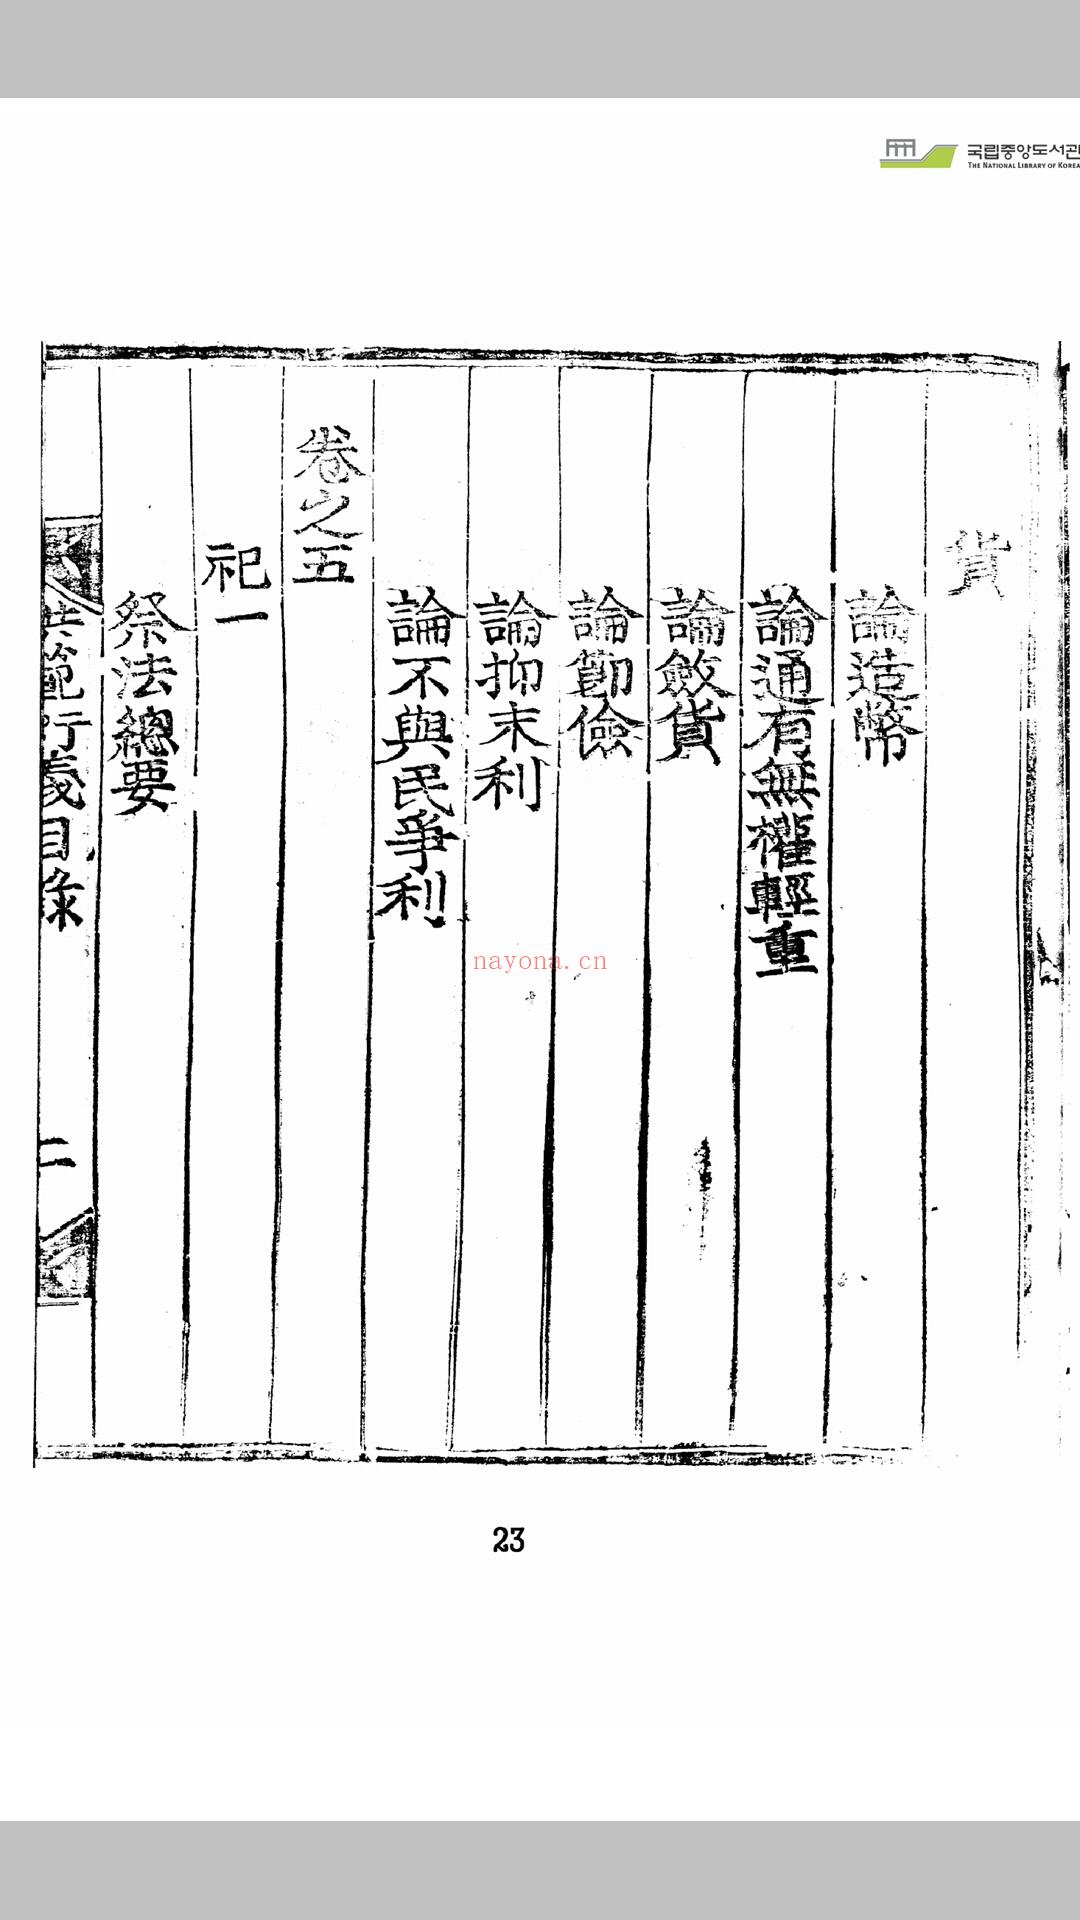 국립중앙도서관
THE NATIONAL LIBRARY OF KOREA
貨
論造幣
論通有無權輕重
論斂貨
論節儉
論抑末利
論不與民爭利
卷之五
祀一
祭法總要
洪範衍義目錄
二
nayona.cn
23